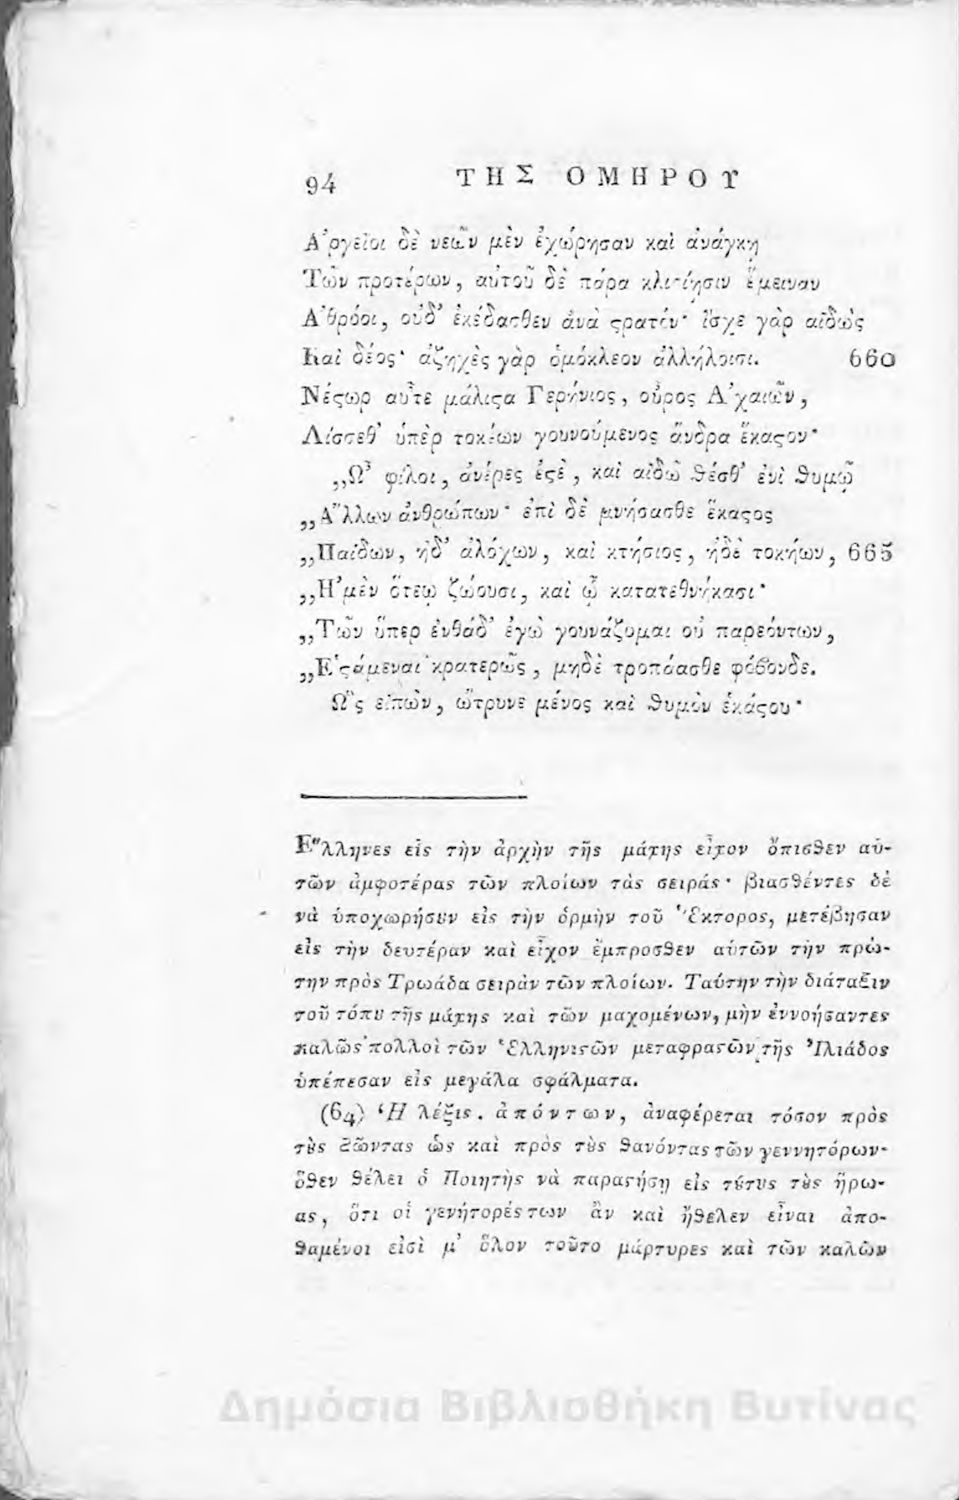 94 ΤΗΣ ΟΜΗΡΟΥ
Ἀργεῖοι δὲ νεῶν μὲν ἐχώρησαν καὶ ἀνάγκῃ
Τῶν προτέρων, αὐτοῦ δὲ πάρα κλισίῃσιν ἔμειναν
Ἀθρόοι, οὐδ' ἐκέδασθεν ἀνὰ ϛρατόν· ἴσχε γὰρ αἰδὼς
Καὶ δέος· ἀζηχὲς γὰρ ὁμόκλεον ἀλλήλοισι. 660
Νέϛωρ αὖτε μάλιϛα Γερήνιος, οὖρος Ἀχαιῶν,
Λίσσεθ' ὑπὲρ τοκέων γουνούμενος ἄνδρα ἕκαϛον·
„Ὦ φίλοι, ἀνέρες ἐϛὲ, καὶ αἰδῶ θέσθ' ἐνὶ θυμῷ
„Ἄλλων ἀνθρώπων· ἐπὶ δὲ μνήσασθε ἕκαϛος
„Παίδων, ἠδ' ἀλόχων, καὶ κτήσιος, ἠδὲ τοκήων, 665
„Ἠμὲν ὅτεῳ ζώουσι, καὶ ᾧ κατατεθνήκασι·
„Τῶν ὕπερ ἐνθάδ' ἐγὼ γουνάζομαι οὐ παρεόντων,
„Ἑϛάμεναι κρατερῶς, μηδὲ τροπάασθε φόβονδε.
Ὣς εἰπὼν, ὤτρυνε μένος καὶ θυμὸν ἑκάϛου·
Ἕλληνες εἰς τὴν ἀρχὴν τῆς μάχης εἶχον ὄπισθεν αὐ-
τῶν ἀμφοτέρας τῶν πλοίων τὰς σειράς· βιασθέντες δὲ
νὰ ὑποχωρήσυν εἰς τὴν ὁρμὴν τοῦ Ἕκτορος, μετέβησαν
εἰς τὴν δευτέραν καὶ εἶχον ἔμπροσθεν αὐτῶν τὴν πρώ-
την πρὸς Τρωάδα σειρὰν τῶν πλοίων. Ταύτην τὴν διάταξιν
τοῦ τόπȣ τῆς μάχης καὶ τῶν μαχομένων, μὴν ἐννοήσαντες
καλῶς πολλοὶ τῶν Ἑλληνιϛῶν μεταφραϛῶν τῆς Ἰλιάδος
ὑπέπεσαν εἰς μεγάλα σφάλματα.
(64) Ἡ λέξις. ἀπόντων, ἀναφέρεται τόσον πρὸς
τȣ̀ς ζῶντας ὡς καὶ πρὸς τȣ̀ς θανόντας τῶν γεννητόρων·
ὅθεν θέλει ὁ Ποιητὴς νὰ παραϛήσῃ εἰς τȣ́τȣς τȣ̀ς ἥρω-
ας, ὅτι οἱ γενήτορές των ἂν καὶ ἤθελεν εἶναι ἀπο-
θαμένοι εἰσὶ μ' ὅλον τοῦτο μάρτυρες καὶ τῶν καλῶν
Δημόσια Βιβλιοθήκη Βυτίνας